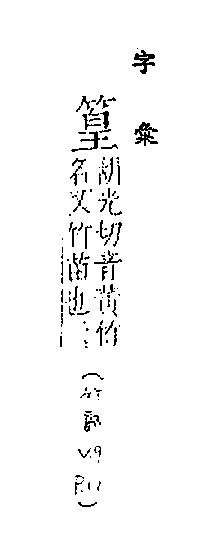 字彙
篁胡光切音黃竹
名又竹苗也⋮
(竹部
V.9
P.11)